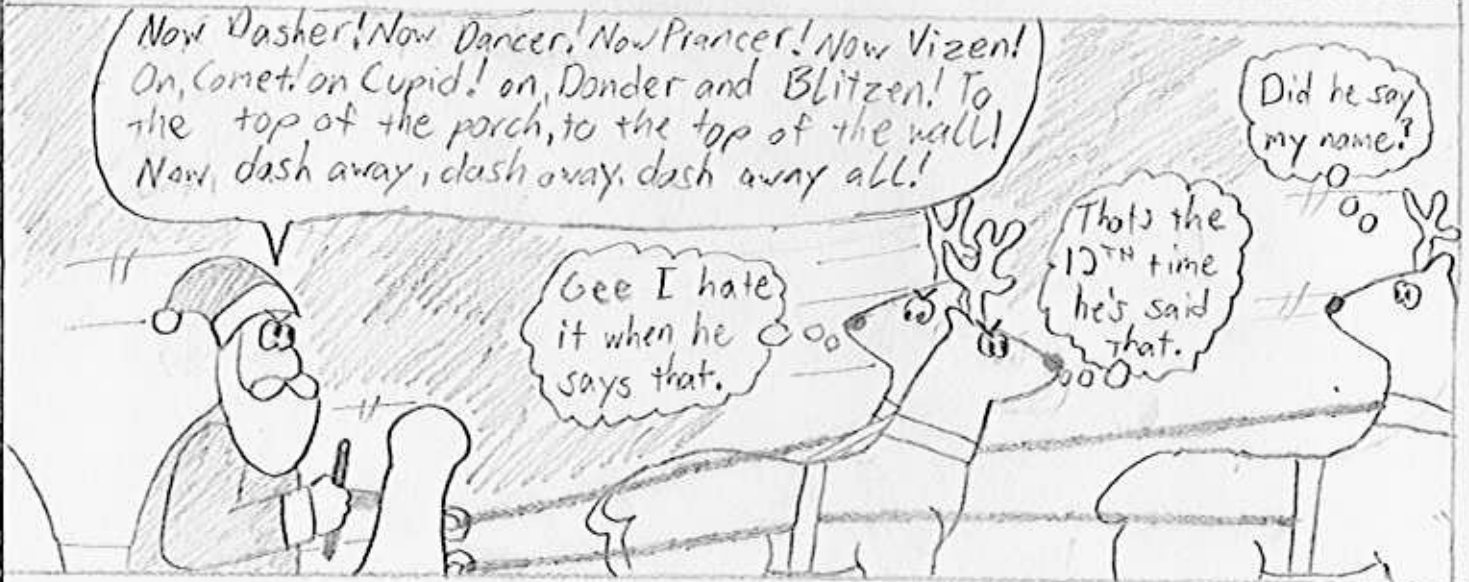 Now Dasher! Now Dancer! Now Prancer! Now Vizen!
On, Comet! on Cupid! on, Donder and Blitzen! To
the top of the porch, to the top of the wall!
Now, dash away, dash away, dash away all!
Gee I hate
it when he
says that.
Thats the
12TH time
he's said
that.
Did he say
my name?